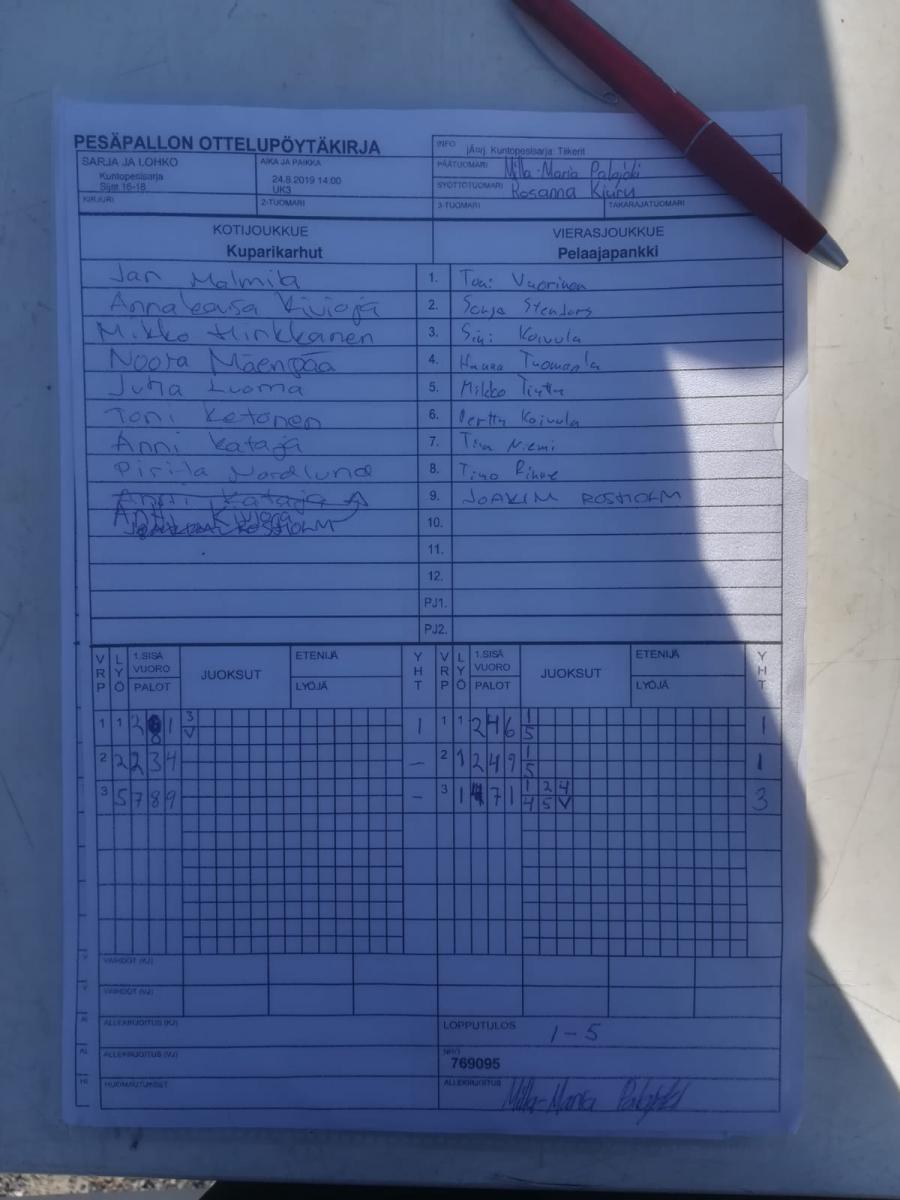 PESÄPALLON OTTELUPÖYTÄKIRJA
INFO jÄarj. Kuntopesisarja: Tiikerit
SARJA JA LOHKO
Kuntopesisarja
Sijat 16-18
AIKA JA PAIKKA
24.8.2019 14:00
UK3
PÄÄTUOMARI Milla-Maria Palojoki
SYÖTTÖTUOMARI Rosanna Kiuru
KIRJURI 2-TUOMARI 3-TUOMARI TAKARAJATUOMARI
KOTIJOUKKUE VIERASJOUKKUE
Kuparikarhut Pelaajapankki
Jan Malmila 1. Toni Vuorinen
Annaleousa Kivioja 2. Sonja Stenfors
Mikko Hinkkanen 3. Sini Koivula
Noora Mäenpää 4. Hanna Tuomaala
Juha Luoma 5. Mikko
Toni Ketonen 6. Perttu Koivula
Anni Kataja 7. Tiia Niemi
Piritta Nordlund 8. Timo
Anni Kataja 9. JOAKIM ROSTHOLM
Kivioja 10.
11.
12.
PJ1.
PJ2.
VRP LYÖ 1.SISÄ VUORO PALOT JUOKSUT ETENIJÄ LYÖJÄ YHT VRP LYÖ 1.SISÄ VUORO PALOT JUOKSUT ETENIJÄ LYÖJÄ YHT
1 1 2 8 1 3 V 1 1 1 2 4 6 1 5 1
2 2 2 3 4 – 2 1 2 4 9 1 5 1
3 5 7 8 9 – 3 1 7 1 1 2 4 4 5 V 3
VAIHDOT (KJ)
VAIHDOT (VJ)
ALLEKIRJOITUS (KJ) LOPPUTULOS 1-5
ALLEKIRJOITUS (VJ) NRO 769095
HUOMAUTUKSET ALLEKIRJOITUS Milla-Maria Palojoki